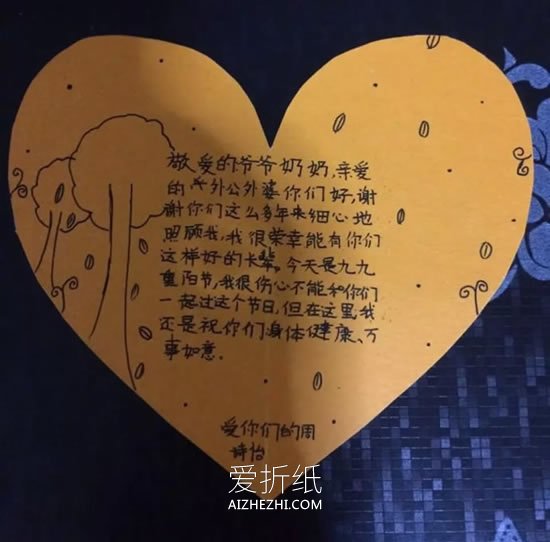 敬爱的爷爷奶奶，亲爱
的外公外婆你们好，谢
谢你们这么多年来细心地
照顾我，我很荣幸能有你们
这样好的长辈。今天是九九
重阳节，我很伤心不能和你们
一起过这个节日，但在这里，我
还是祝你们身体健康、万
事如意．
爱你们的周
诗怡
爱折纸
AIZHEZHI.COM